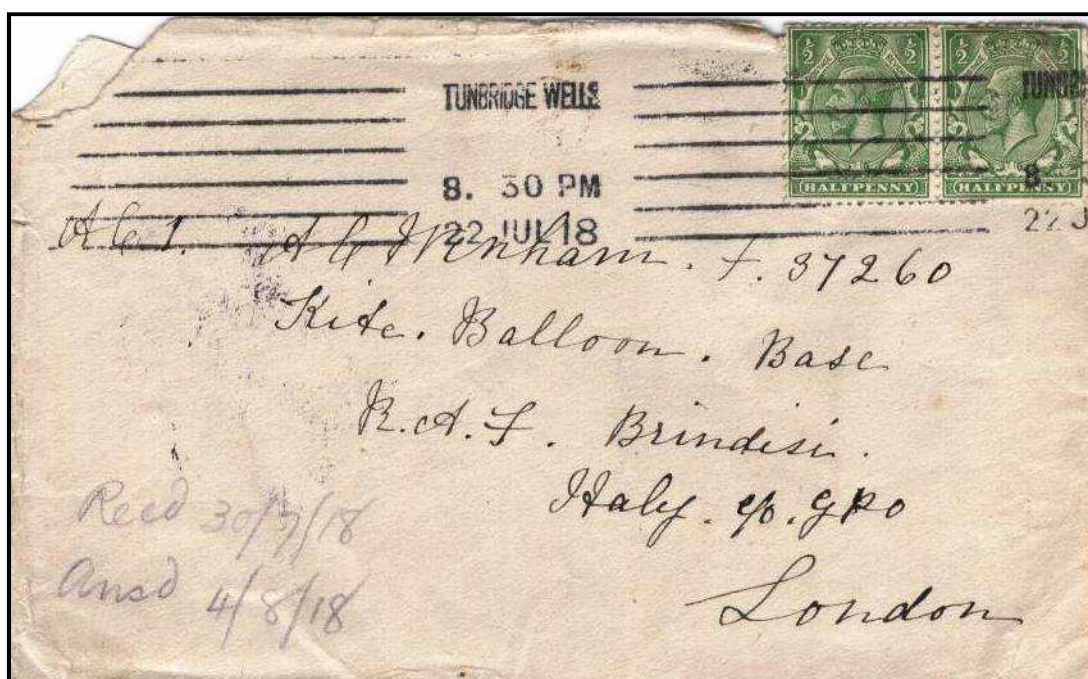 ½ ½ ½ ½
TUNBRIDGE WELLS
8. 30 PM
22 JUL 18
HALFPENNY HALFPENNY
AC1. A C Wenham. F. 37260
Kite. Balloon. Base
R.A.F. Brindisi.
Italy. c/o. GPO
London
Recd 30/7/18
Ansd 4/8/18